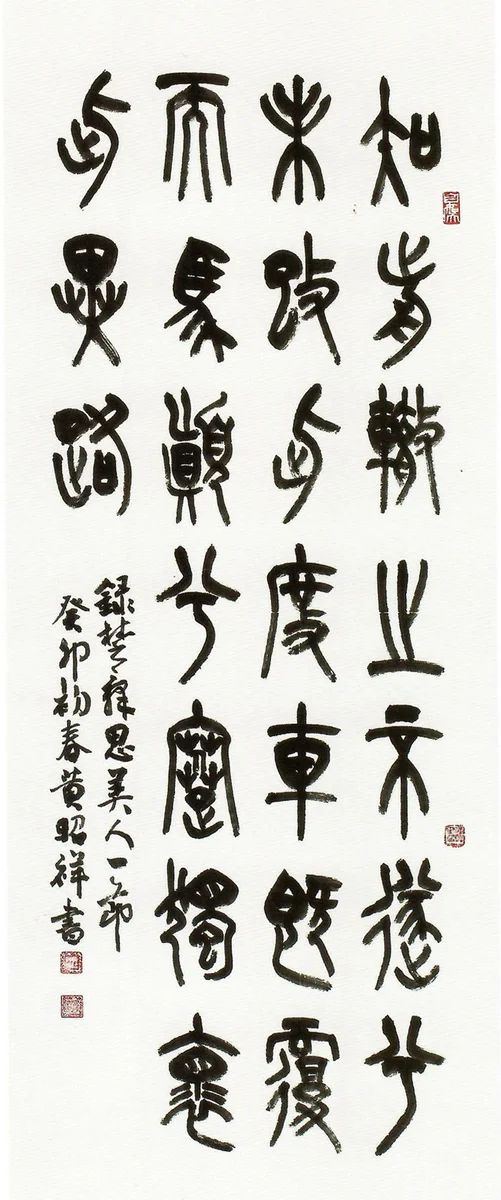 知前轍之不遂兮
未改此度車既覆
而馬顛兮蹇獨褱
此異路
錄楚辭思美人一節
癸卯初春黃昭祥書